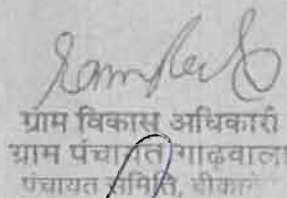 ग्राम विकास अधिकारी
ग्राम पंचायत गाढ़वाला
पंचायत समिति,